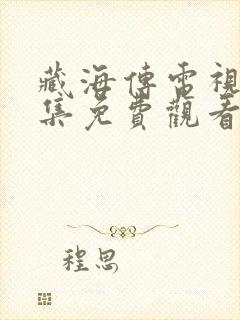 藏海傳電視
集免費觀看
程思